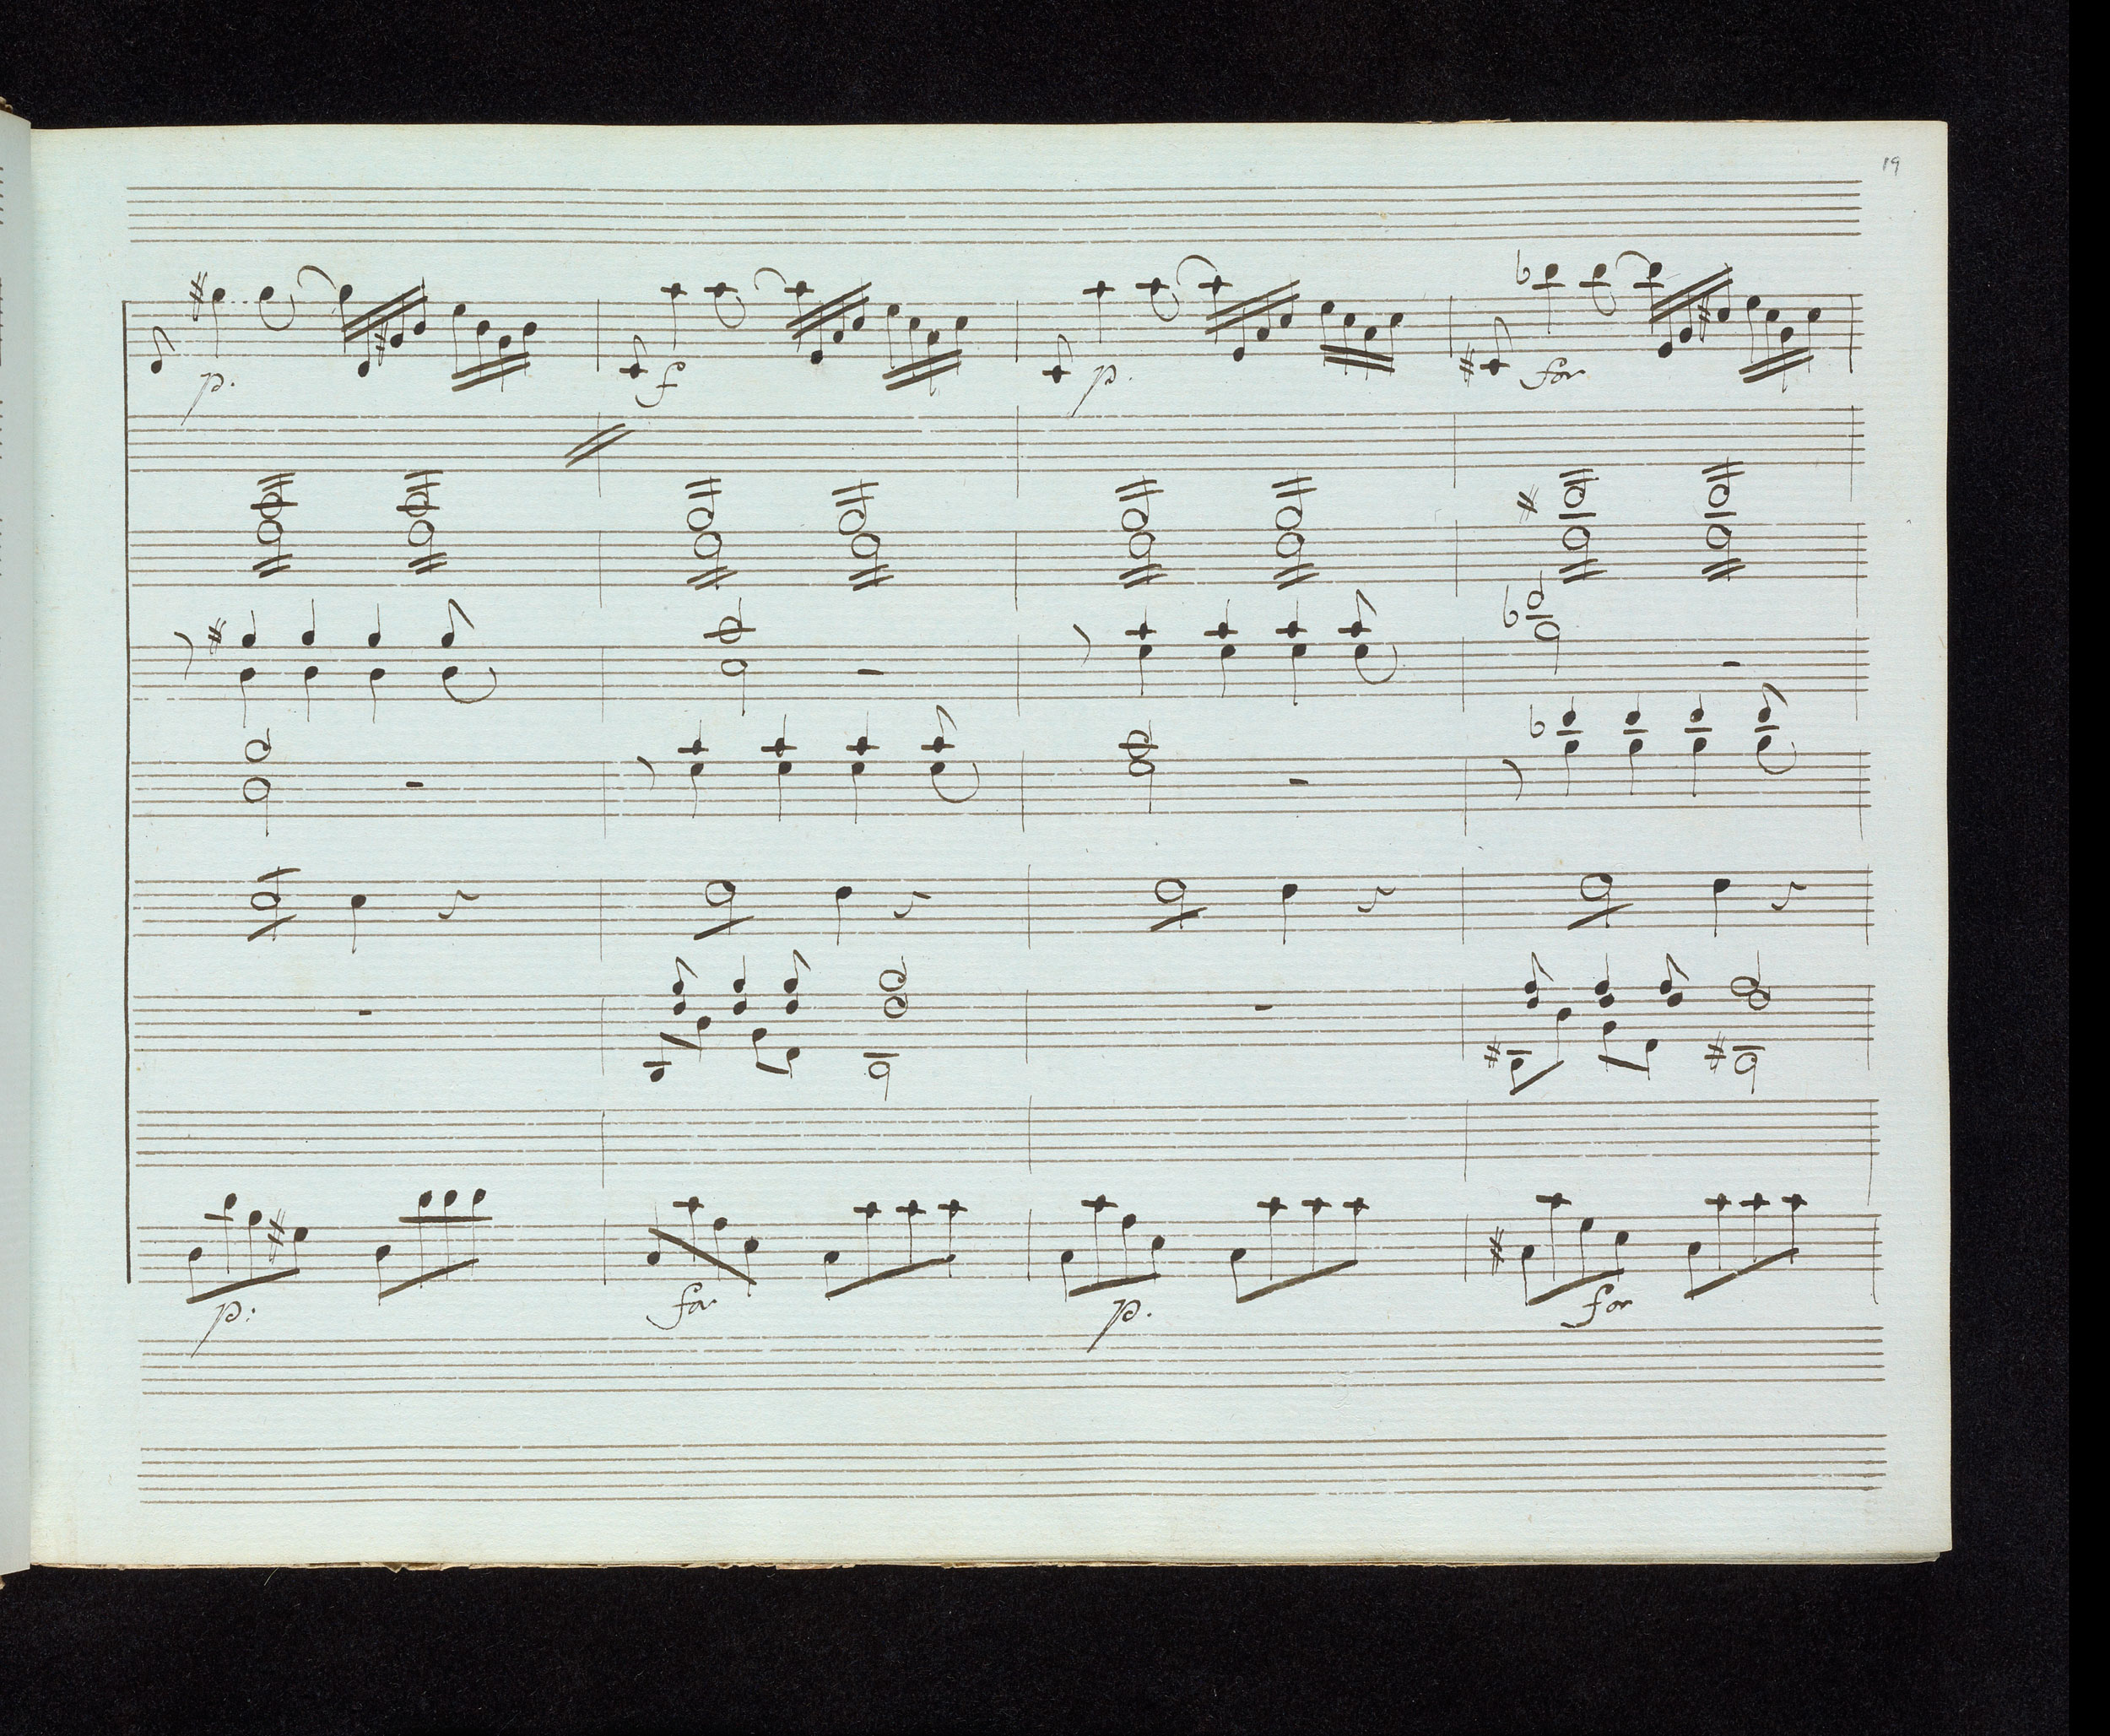 19
p. f p. for
p: for p. for